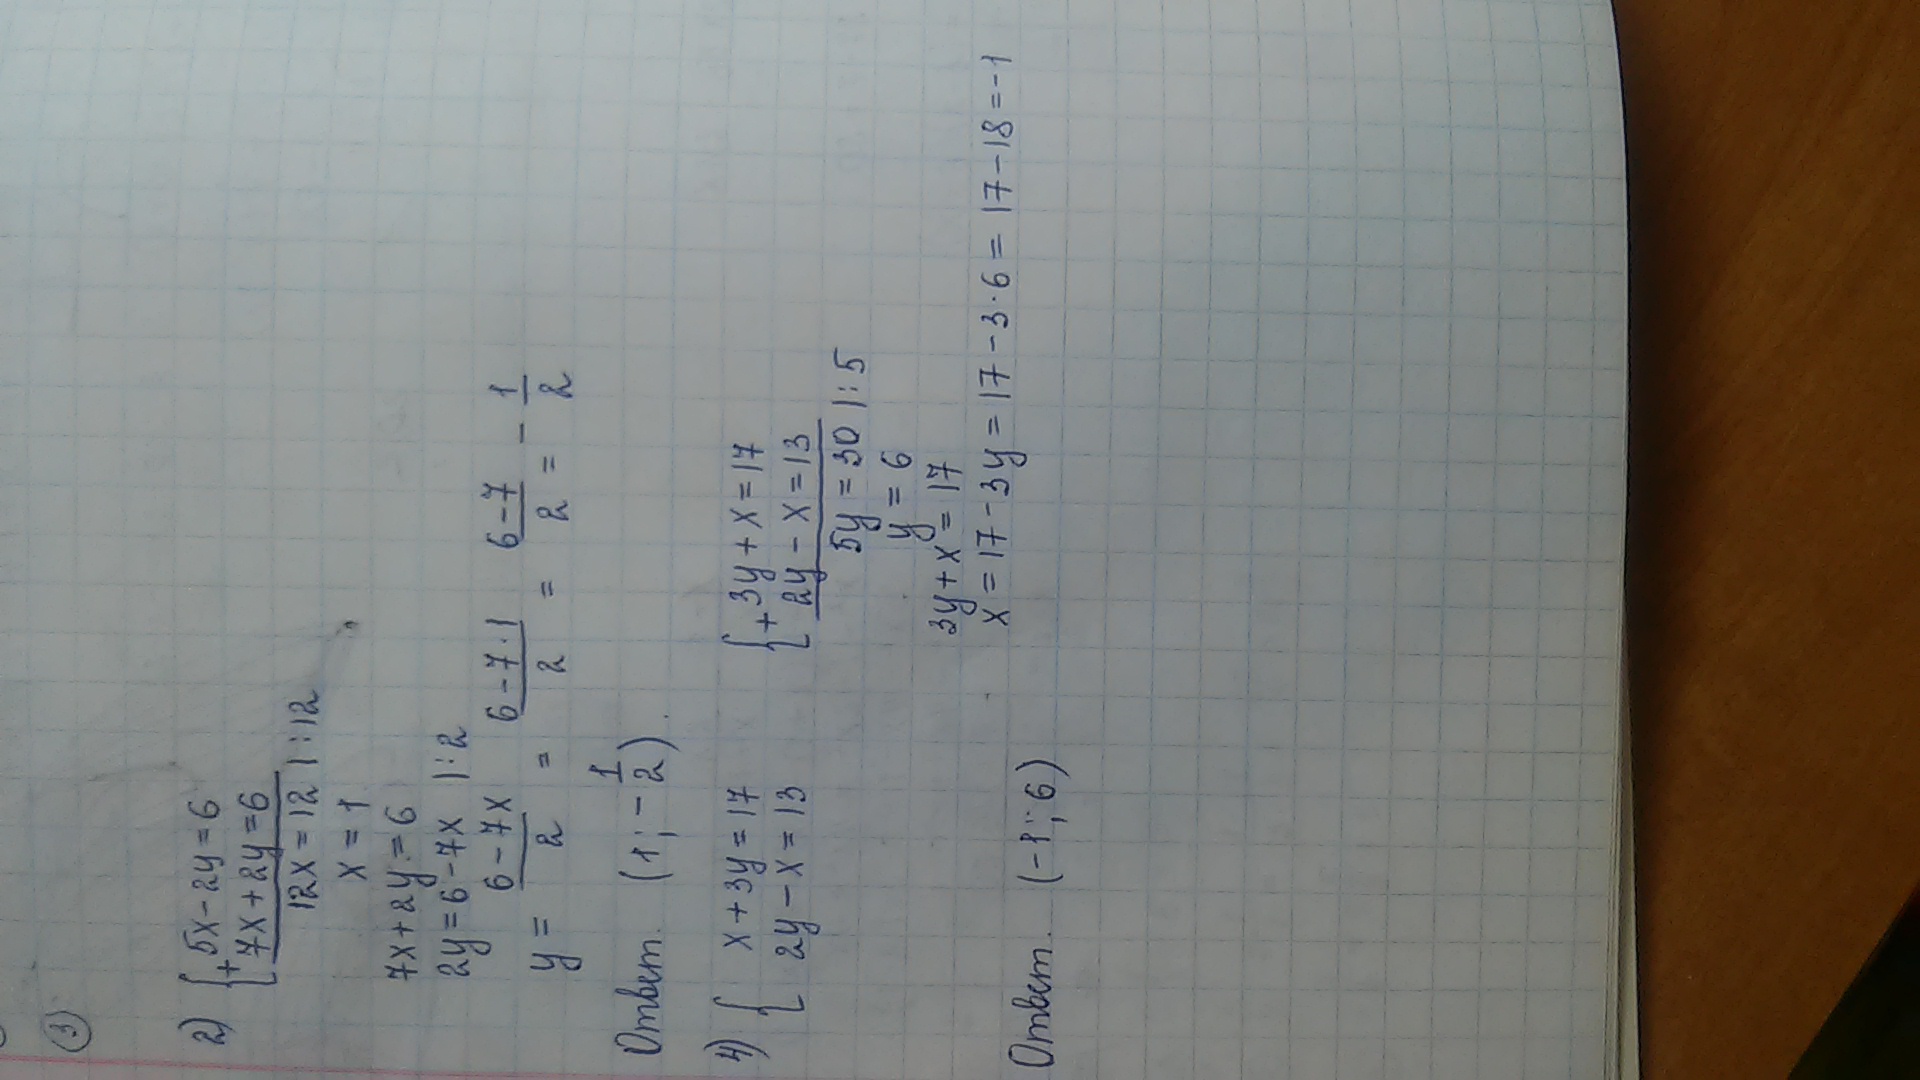 3
2) { + 5x - 2y = 6
7x + 2y = 6
12x = 12 | : 12
x = 1
7x + 2y = 6
2y = 6 - 7x | : 2
y = (6 - 7x)/2 = (6 - 7 · 1)/2 = (6 - 7)/2 = - 1/2
Ответ. (1; - 1/2).
4) { x + 3y = 17 { + 3y + x = 17
2y - x = 13 2y - x = 13
5y = 30 | : 5
y = 6
3y + x = 17
x = 17 - 3y = 17 - 3 · 6 = 17 - 18 = -1
Ответ. (-1; 6)